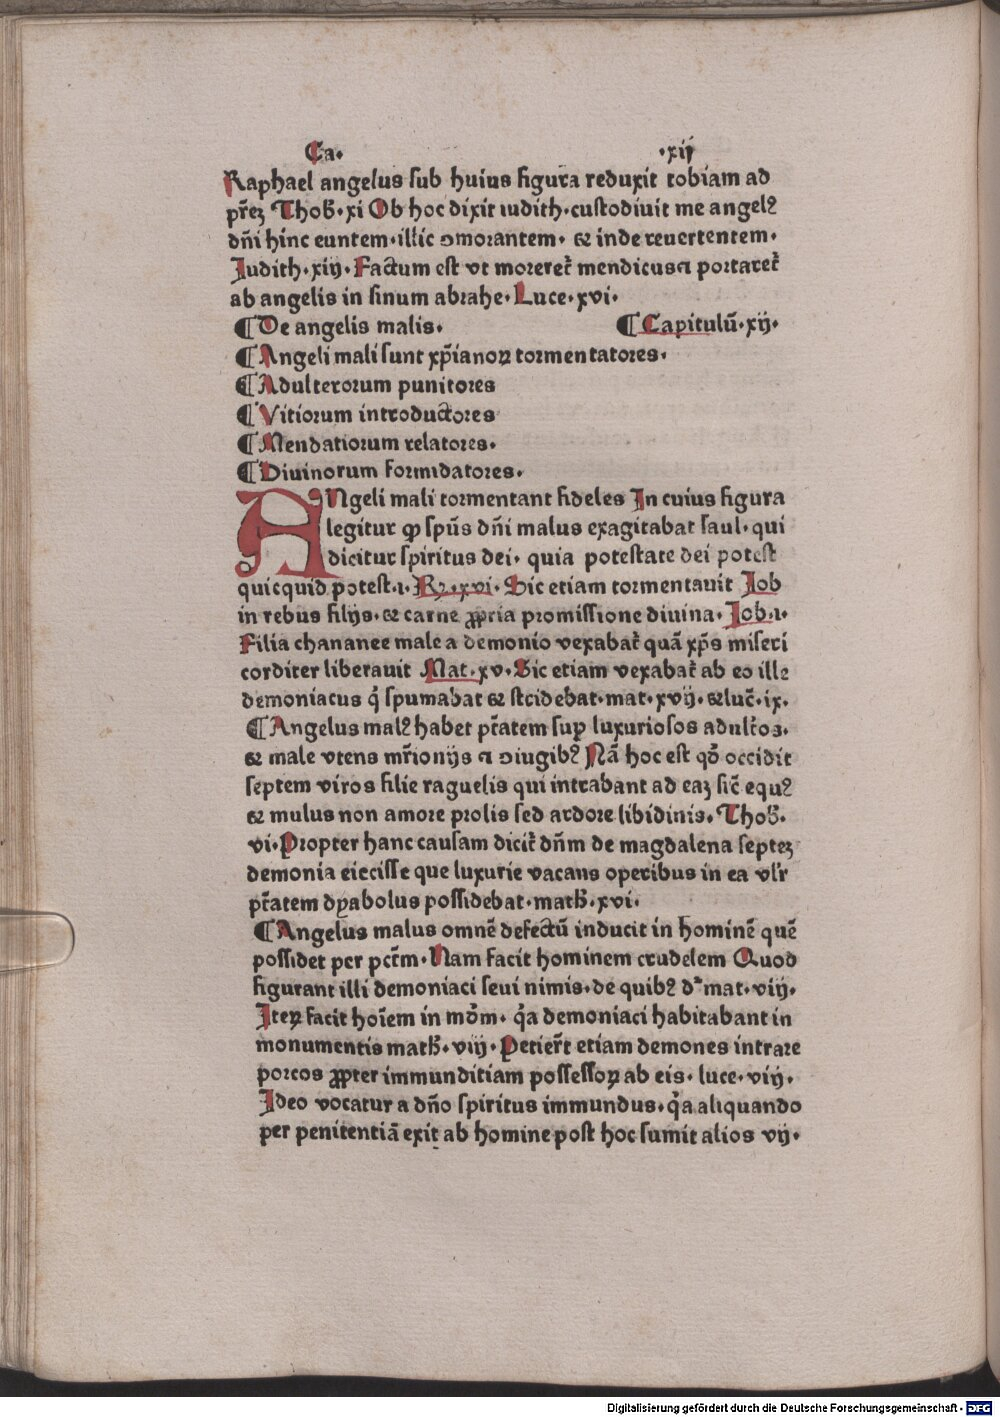 Ca. .xij
Raphael angelus sub huius figura reduxit tobiam ad
pr̄eꝫ Thob̄. xi Ob hoc dixit iudith. custodiuit me angelꝰ
dn̄i hinc euntem. illic ꝯmorantem. & inde reuertentem.
Judith. xiij. Factum est vt moreret᷑ mendicus ⁊ portaret᷑
ab angelis in sinum abrahe. Luce. xvi.
¶ De angelis malis. ¶ Capitulū. xij.
¶ Angeli mali sunt xp̄ianoꝝ tormentatores.
¶ Adulterorum punitores
¶ Vitiorum introductores
¶ Mendatiorum relatores.
¶ Diuinorum formidatores.
ANgeli mali tormentant fideles In cuius figura
legitur ꝙ spūs dn̄i malus exagitabat saul. qui
dicitur spiritus dei. quia potestate dei potest
quicquid potest. ı. Rꝫ. xvi. Sic etiam tormentauit Job
in rebus filijs. & carne ꝓpria promissione diuina. Job. ı.
Filia chananee male a demonio vexabat᷑ quā xp̄s miseri
corditer liberauit Mat. xv. Sic etiam vexabat᷑ ab eo ille
demoniacus q̇ spumabat & stcidebat. mat. xvij. & luc̄. ix.
¶ Angelus malꝰ habet pt̄atem suꝑ luxuriosos adult᷑os.
& male vtens mr̄ionijs ⁊ ꝯiugibꝰ Nā hoc est qđ occidit
septem viros filie raguelis qui intrabant ad eaꝫ sic̄ equꝰ
& mulus non amore prolis sed ardore libidinis. Thob̄.
vi. Propter hanc causam dicit᷑ dn̄m de magdalena septeꝫ
demonia eiecisse que luxurie vacans operibus in ea vl'r
pt̄atem dyabolus possidebat. math̄. xvi.
¶ Angelus malus omnē defectū inducit in hominē quē
possidet per pct̄m. Nam facit hominem crudelem Quod
figurant illi demoniaci seui nimis. de quibꝰ d᷑ mat. viij.
Iteꝝ facit hoīem in mōm. q̇a demoniaci habitabant in
monumentis math̄. viij. Petier̄t etiam demones intrare
porcos ꝓpter immunditiam possessoꝝ ab eis. luce. viij.
Ideo vocatur a dn̄o spiritus immundus. q̇a aliquando
per penitentiā exit ab homine post hoc sumit alios vij.
Digitalisierung gefördert durch die Deutsche Forschungsgemeinschaft - DFG